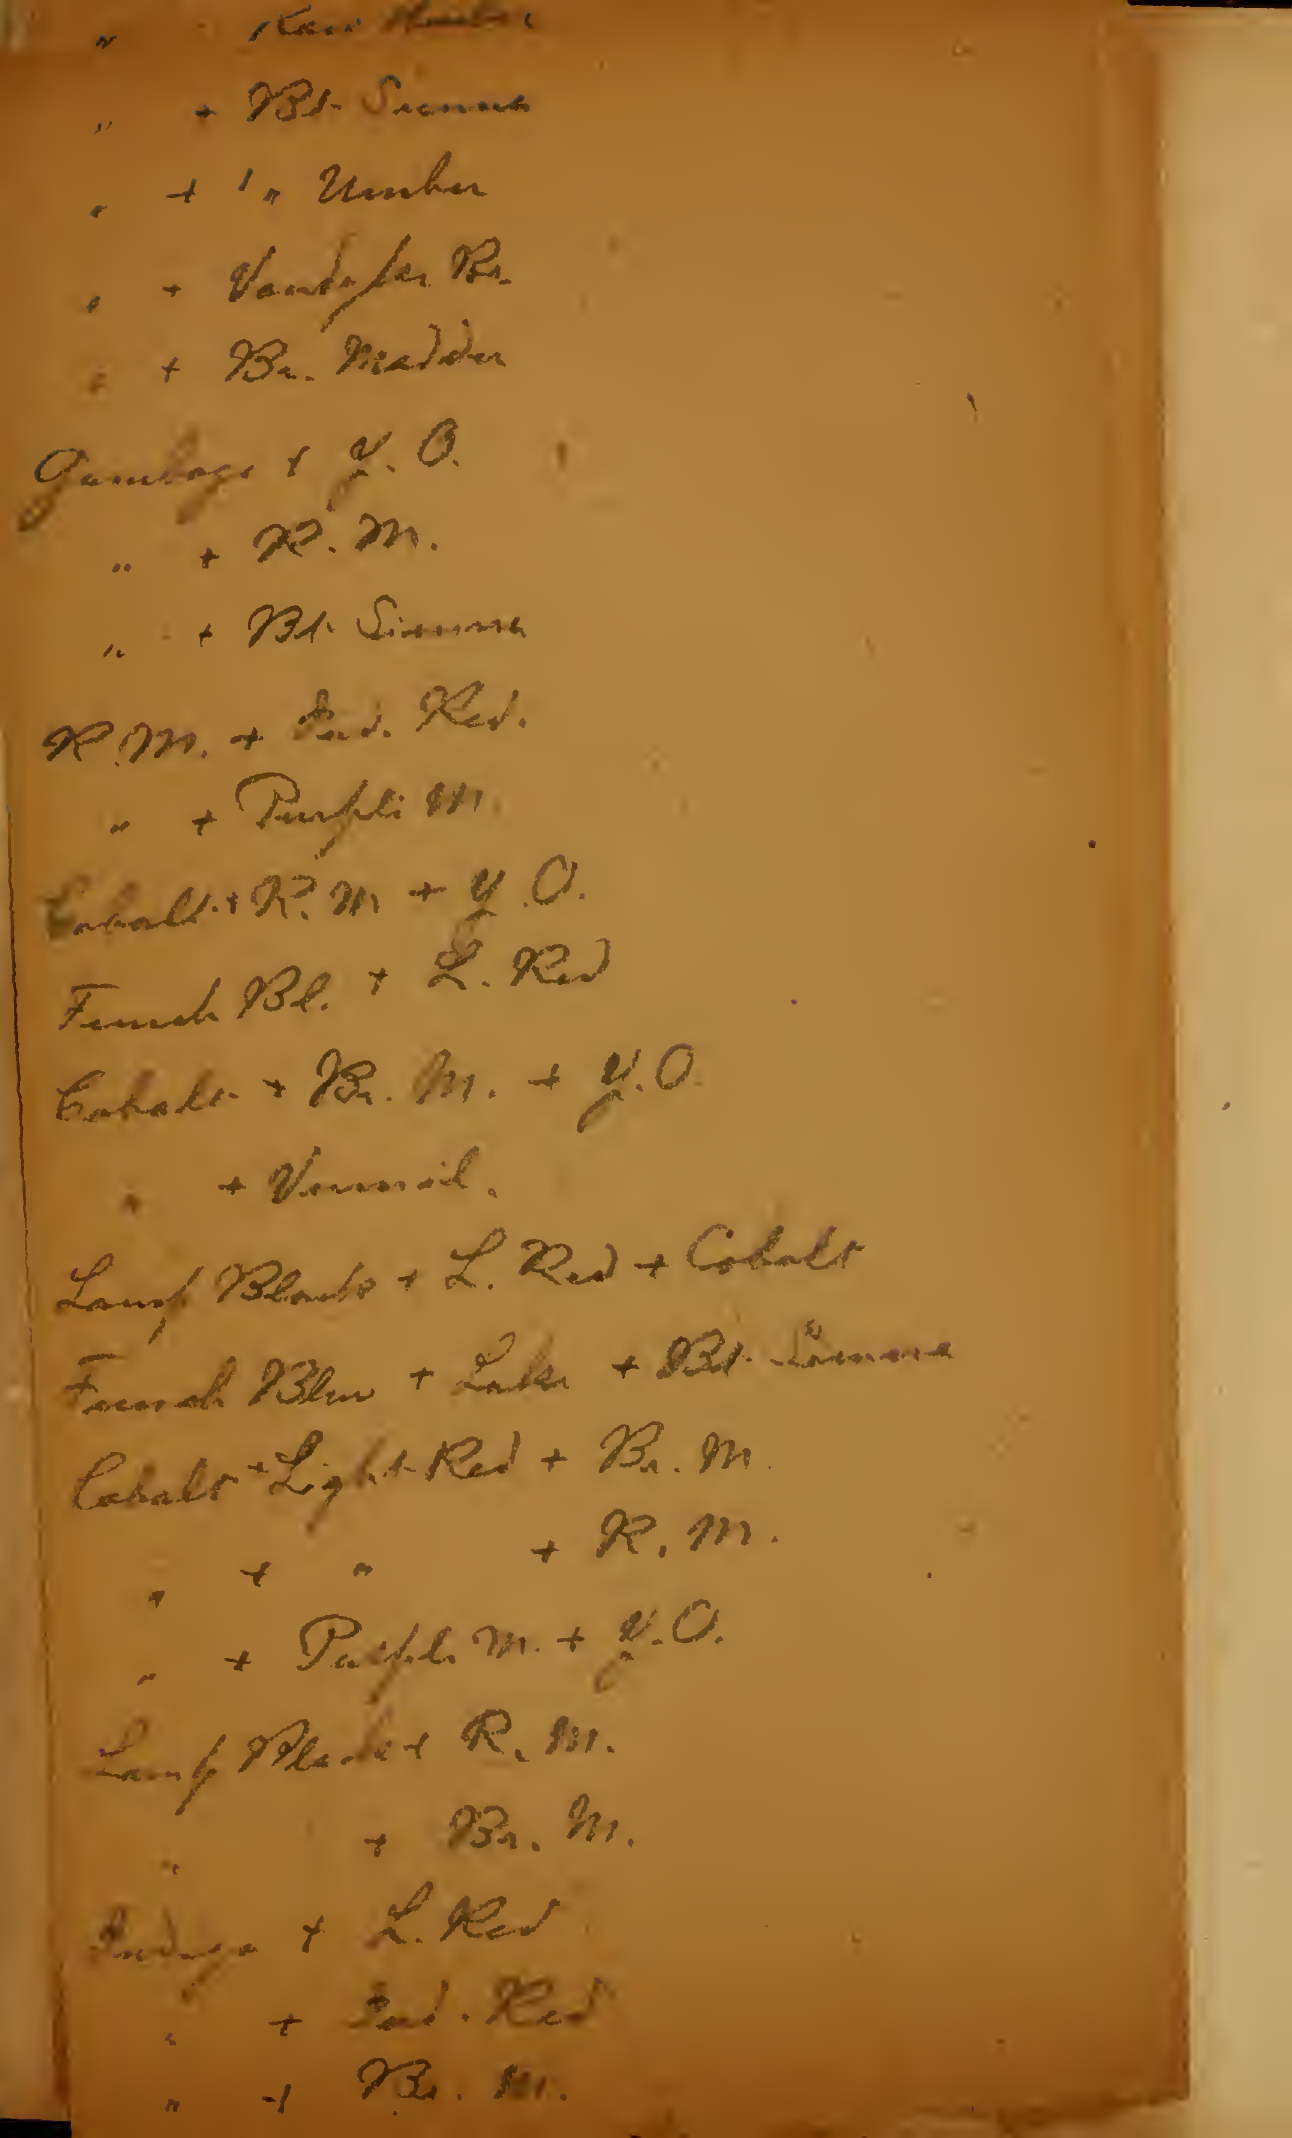 " Raw Umber
" + Bt. Sienna
" + " Umber
" + Vandyke Br.
" + Br. Madder
Gamboge + Y. O.
" + R. M.
" + Bt. Sienna
R. M. + Ind. Red.
" + Purple M.
Cobalt + R. M + Y. O.
French Bl. + L. Red
Cobalt + Br. M. + Y. O.
" + Vermil.
Lamp Black + L. Red + Cobalt
French Blue + Lake + Bt. Sienna
Cobalt + Light Red + Br. M.
" + " + R. M.
" + Purple M. + Y. O.
Lamp Black + R. M.
" + Br. M.
Indigo + L. Red
" + Ind. Red
" + Br. M.